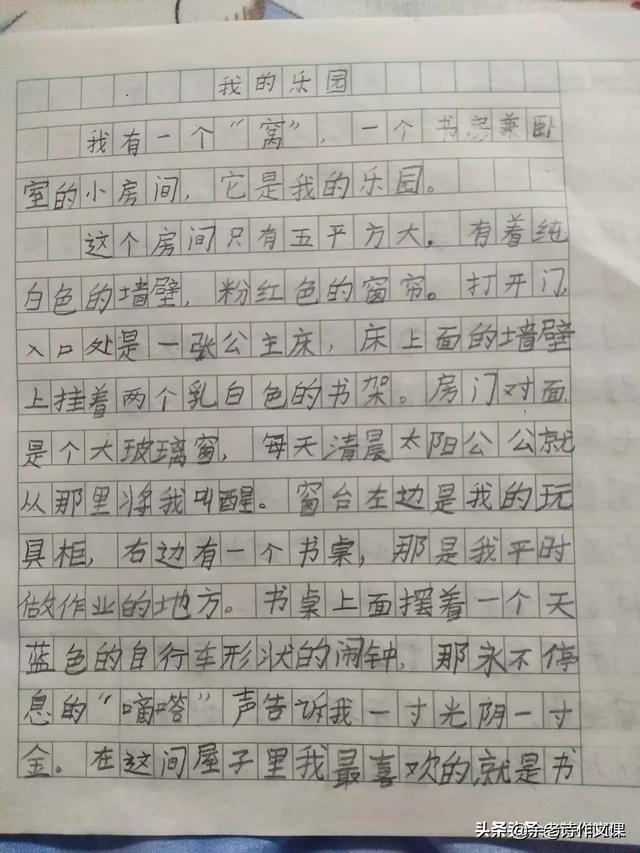 我的乐园
我有一个“窝”，一个书房兼卧
室的小房间，它是我的乐园。
这个房间只有五平方大，有着纯
白色的墙壁，粉红色的窗帘。打开门，
入口处是一张公主床，床上面的墙壁
上挂着两个乳白色的书架。房门对面
是个大玻璃窗，每天清晨太阳公公就
从那里将我叫醒。窗台左边是我的玩
具柜，右边有一个书桌，那是我平时
做作业的地方。书桌上面摆着一个天
蓝色的自行车形状的闹钟，那永不停
息的“嘀嗒”声告诉我一寸光阴一寸
金。在这间屋子里我最喜欢的就是书
头条 @余老诗作文课